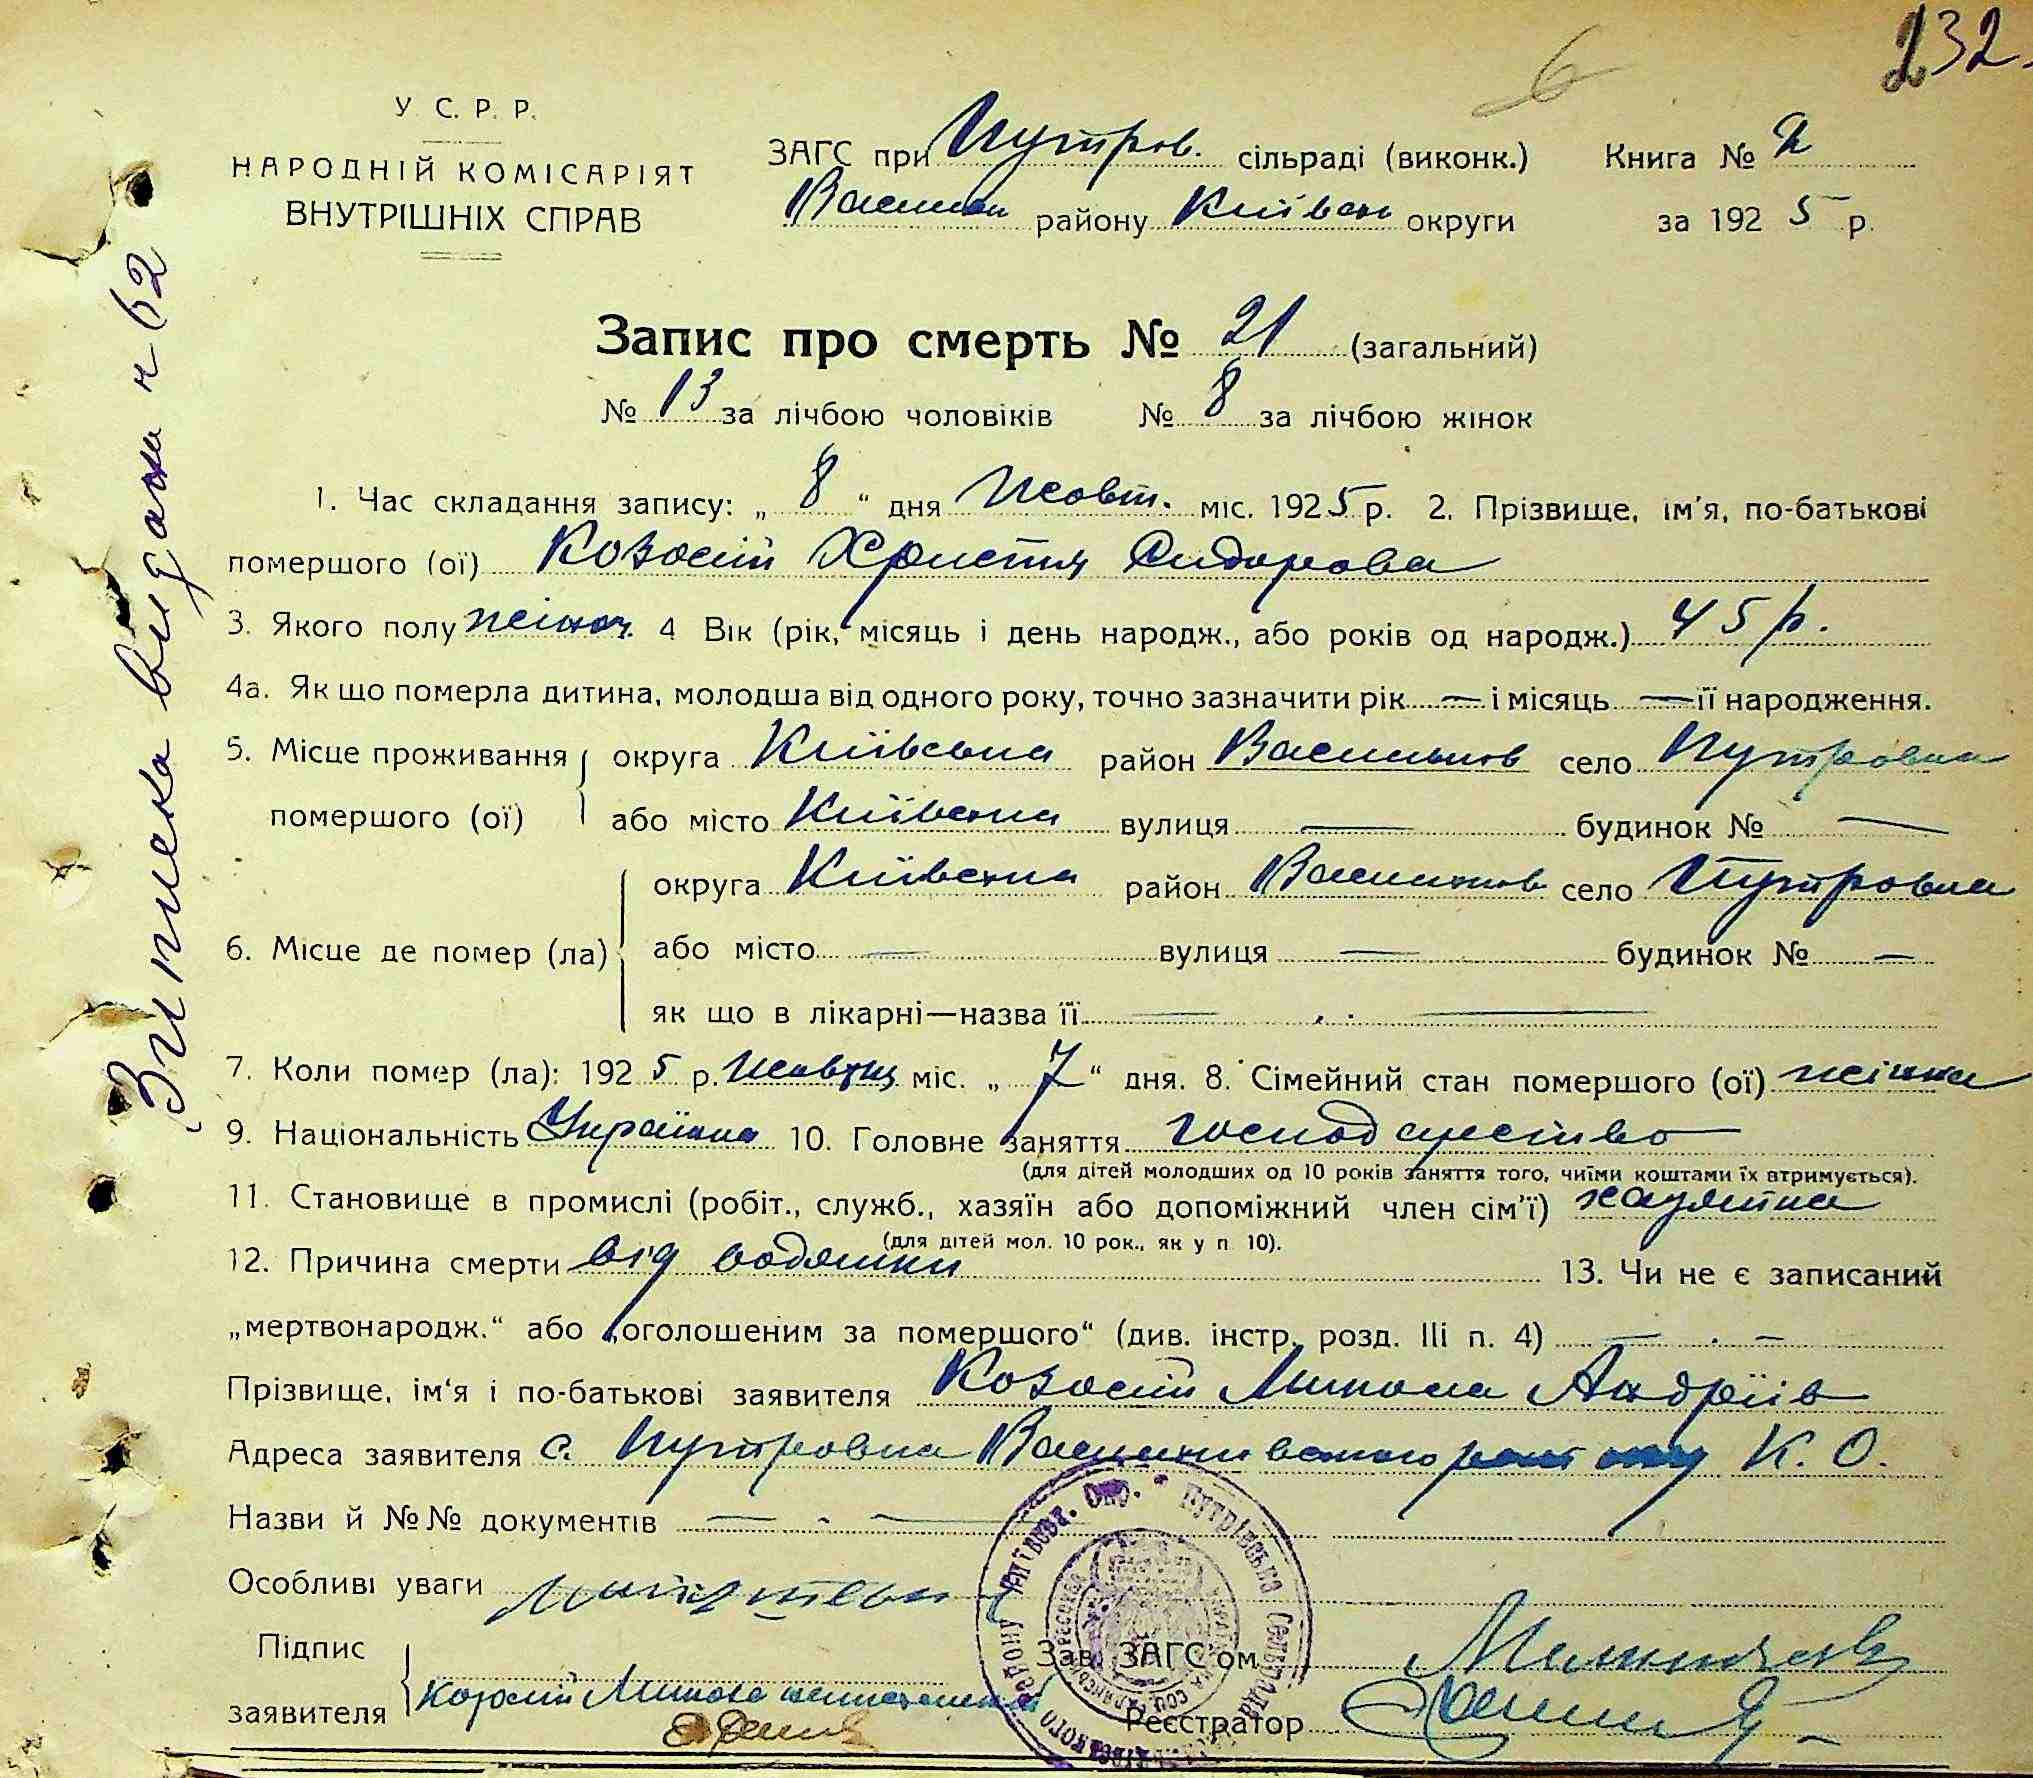 232.
6
У С. Р. Р.
НАРОДНІЙ КОМІСАРІЯТ
ВНУТРІШНІХ СПРАВ
ЗАГС при Путров. сільраді (виконк.) Книга № 2
району округи за 1925 р.
Виписка видана н 62
Запис про смерть № 21 (загальний)
№ 13 за лічбою чоловіків № 8 за лічбою жінок
1. Час складання запису: „ 8 “ дня Жовт. міс. 1925 р. 2. Прізвище, ім'я, по-батькові
помершого (ої) Козосій Христя Сидорова
3. Якого полу жіноч. 4 Вік (рік, місяць і день народж., або років од народж.) 45 р.
4а. Як що померла дитина, молодша від одного року, точно зазначити рік — і місяць — її народження.
5. Місце проживання округа Київська район Васильков село Путровка
помершого (ої) або місто Київська вулиця — будинок № —
округа Київська район Васильков село Путровка
6. Місце де помер (ла) або місто — вулиця — будинок № —
як що в лікарні—назва її — —
7. Коли помер (ла): 1925 р. міс. „ 7 “ дня. 8. Сімейний стан помершого (ої) жінка
9. Національність Українка 10. Головне заняття
(для дітей молодших од 10 років заняття того, чиїми коштами їх втримується).
11. Становище в промислі (робіт., служб., хазяїн або допоміжний член сім'ї) хазяйка
(для дітей мол. 10 рок., як у п 10).
12. Причина смерти від водянки 13. Чи не є записаний
„мертвонародж.“ або „оголошеним за помершого“ (див. інстр. розд. ІІі п. 4) — . —
Прізвище, ім'я і по-батькові заявителя Козосій Микола Андріїв
Адреса заявителя с. Путровка К. О.
Назви й №№ документів — . —
Особливі уваги
Підпис
заявителя Козосій Микола
Зав. ЗАГС'ом
Реєстратор